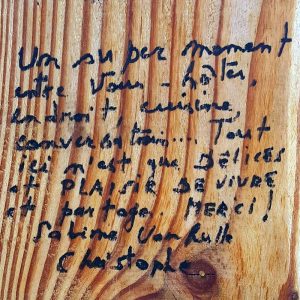 Un super moment
entre vous - hôtes,
endroit, cuisine,
conversation.... Tout
ici n'est que DÉLICES
et PLAISIR DE VIVRE
et partage. MERCI !
Sabine
Christophe.